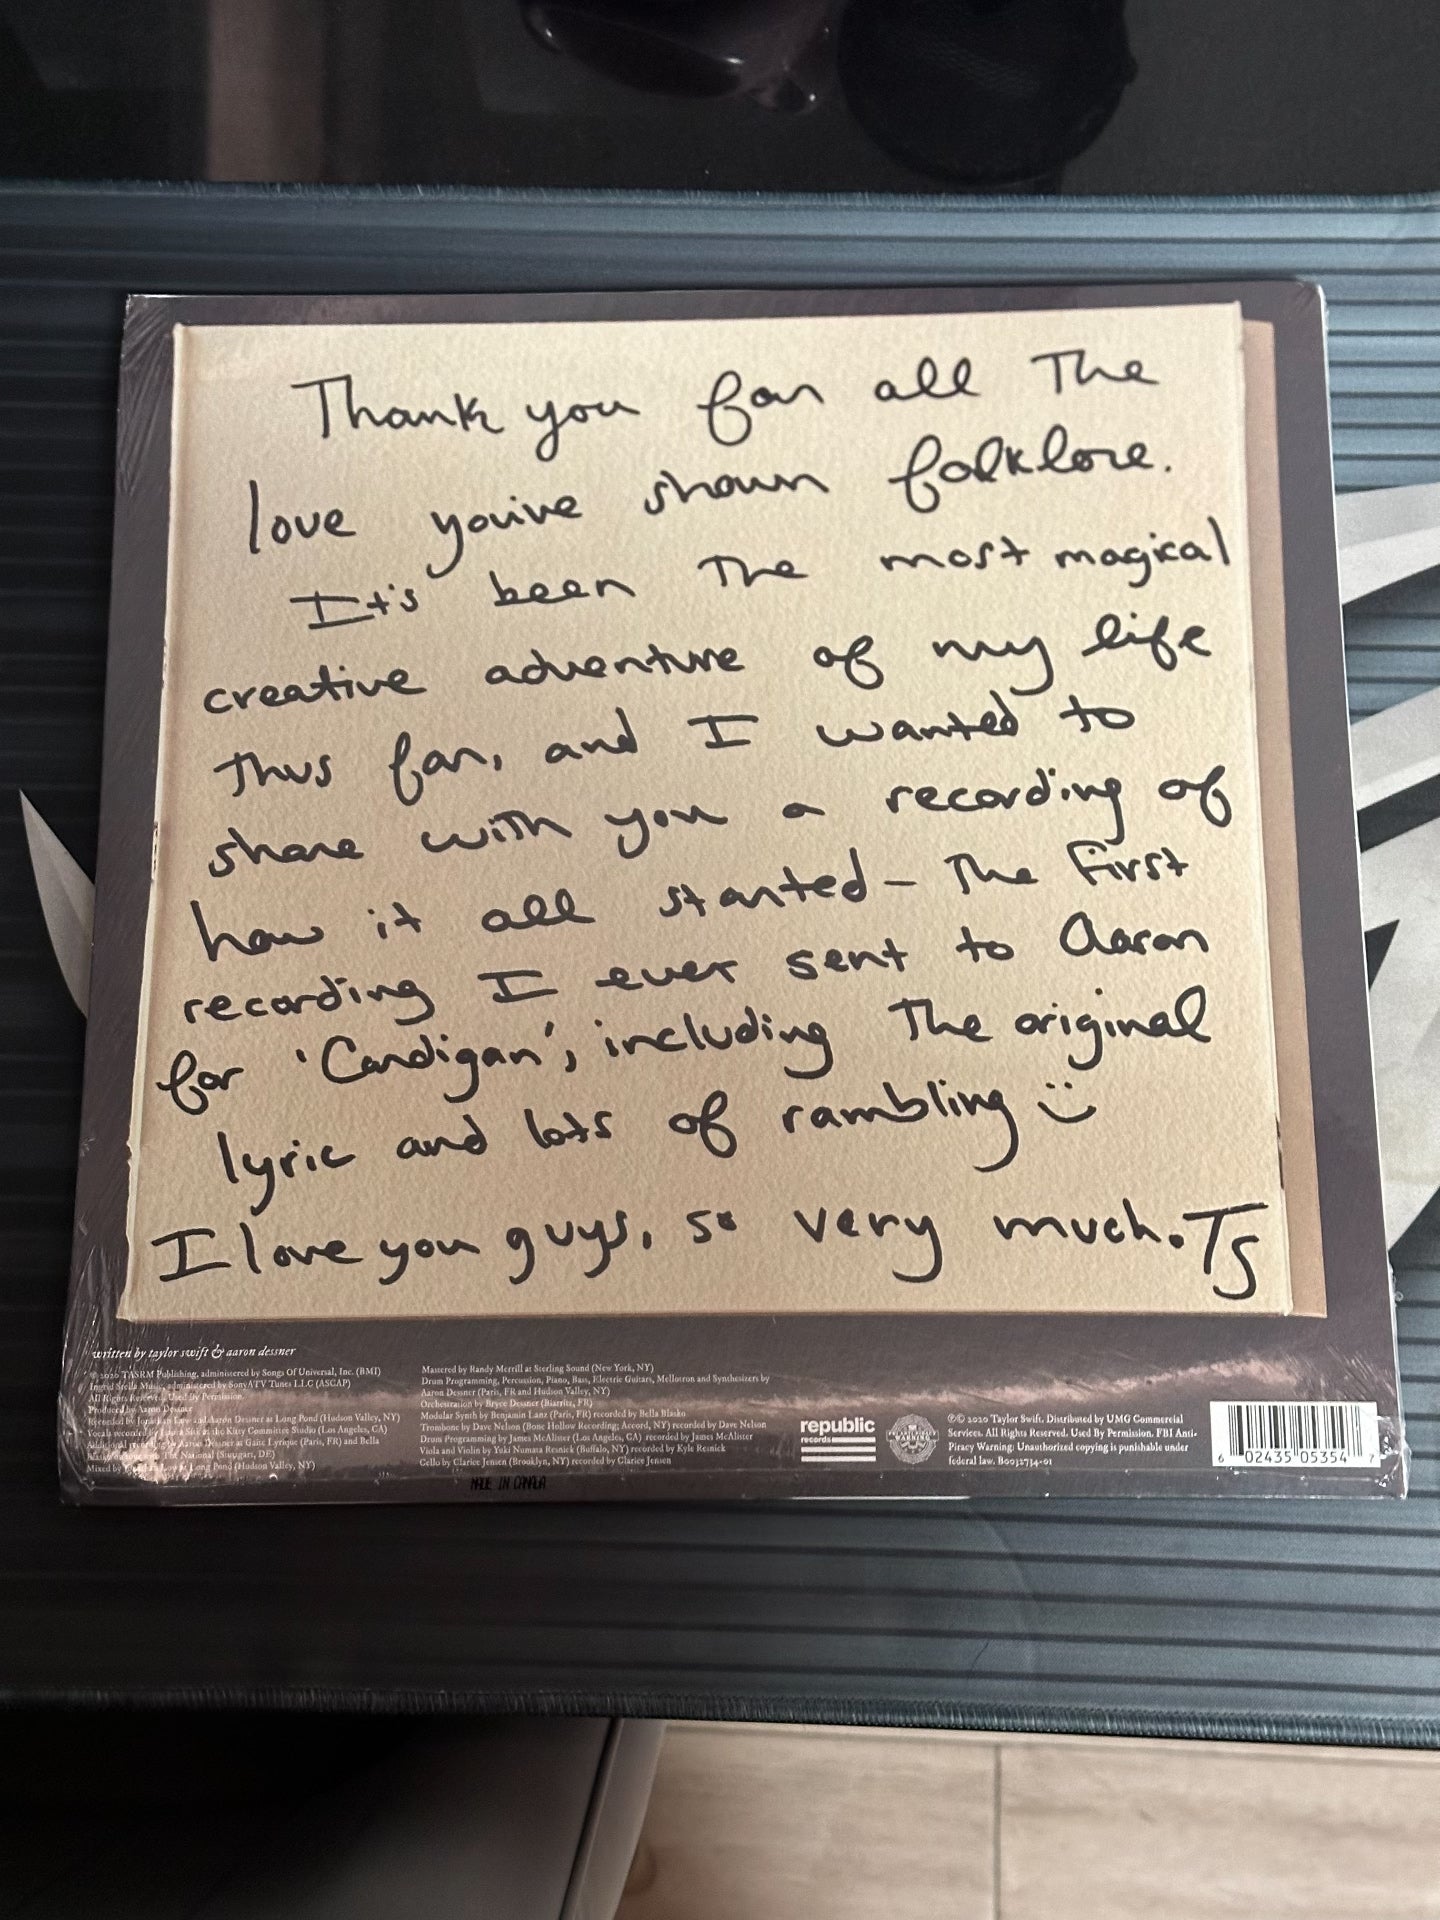 Thank you for all The
love you've shown folklore.
It's been The most magical
creative adventure of my life
thus far, and I wanted to
share with you a recording of
how it all started - The first
recording I ever sent to Aaron
for 'Cardigan', including The original
lyric and lots of rambling :)
I love you guys, so very much. TS
written by taylor swift & aaron dessner
℗ 2020 TASRM Publishing, administered by Songs Of Universal, Inc. (BMI)
Ingrid Stella Music, administered by Sony/ATV Tunes LLC (ASCAP)
All Rights Reserved. Used By Permission.
Produced by Aaron Dessner
Recorded by Jonathan Low and Aaron Dessner at Long Pond (Hudson Valley, NY)
Vocals recorded by Laura Sisk at the Kitty Committee Studio (Los Angeles, CA)
Additional recording by Aaron Dessner at Gaite Lyrique (Paris, FR) and Bella
The National (Stuttgart, DE)
Mixed by Jonathan Low at Long Pond (Hudson Valley, NY)
Mastered by Randy Merrill at Sterling Sound (New York, NY)
Drum Programming, Percussion, Piano, Bass, Electric Guitars, Mellotron and Synthesizers by
Aaron Dessner (Paris, FR and Hudson Valley, NY)
Orchestration by Bryce Dessner (Biarritz, FR)
Modular Synth by Benjamin Lanz (Paris, FR) recorded by Bella Blasko
Trombone by Dave Nelson (Bone Hollow Recording; Accord, NY) recorded by Dave Nelson
Drum Programming by James McAlister (Los Angeles, CA) recorded by James McAlister
Viola and Violin by Yuki Numata Resnick (Buffalo, NY) recorded by Kyle Resnick
Cello by Clarice Jensen (Brooklyn, NY) recorded by Clarice Jensen
MADE IN CANADA
republic
records
℗© 2020 Taylor Swift. Distributed by UMG Commercial
Services. All Rights Reserved. Used By Permission. FBI Anti-
Piracy Warning: Unauthorized copying is punishable under
federal law. B0032734-01
6 02435 05354 7